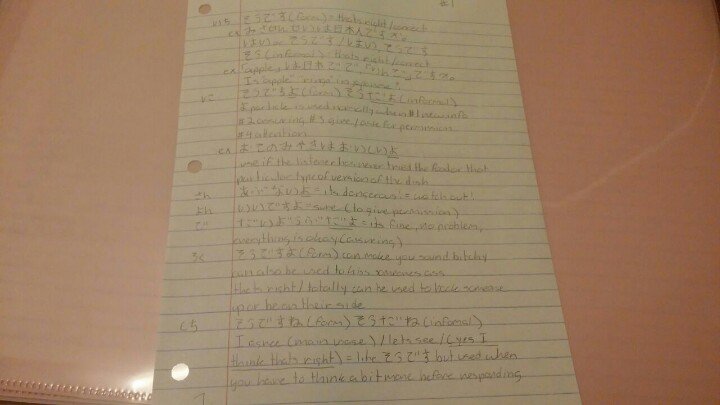 #1
いち そうです (form) = thats right/correct
ex みさけんせいは日本人ですか。
はい。そうです/はい、そうです
そう (informal) = thats right/correct
ex "apple" は日本で "りんご" ですか。
Is "apple" "ringo" in japanese?
に そうですよ (form) そうだよ (informal)
よ particle is used normally when #1 new info
#2 assuring #3 give/ask for permission
#4 attention
ex お このみやきはおいしいよ
use if the listener has never tried the food or that
particular type of version of the dish
さん あぶないよ = its dangerous! = watch out!
よん いいですよ = sure (to give permission)
ご だいじょうぶだよ = its fine, no problem,
everything is okay (assuring)
ろく そうですよ (form) can make you sound bitchy
can also be used to kiss someones ass
thats right/totally can be used to back someone
up or be on their side
しち そうですね (form) そうだね (informal)
I agree (main use) / lets see / (yes I
think thats right) = like そうです but used when
you have to think a bit more before responding